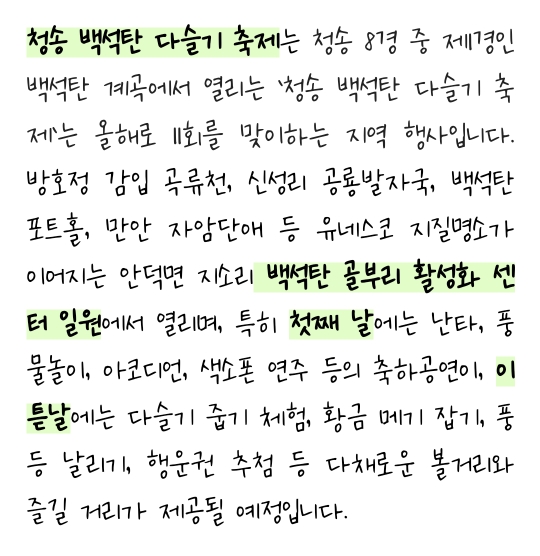 청송 백석탄 다슬기 축제는 청송 8경 중 제1경인
백석탄 계곡에서 열리는 '청송 백석탄 다슬기 축
제'는 올해로 11회를 맞이하는 지역 행사입니다.
방호정 감입 곡류천, 신성리 공룡발자국, 백석탄
포트홀, 만안 자암단애 등 유네스코 지질명소가
이어지는 안덕면 지소리 백석탄 골부리 활성화 센
터 일원에서 열리며, 특히 첫째 날에는 난타, 풍
물놀이, 아코디언, 색소폰 연주 등의 축하공연이, 이
튿날에는 다슬기 줍기 체험, 황금 메기 잡기, 풍
등 날리기, 행운권 추첨 등 다채로운 볼거리와
즐길 거리가 제공될 예정입니다.